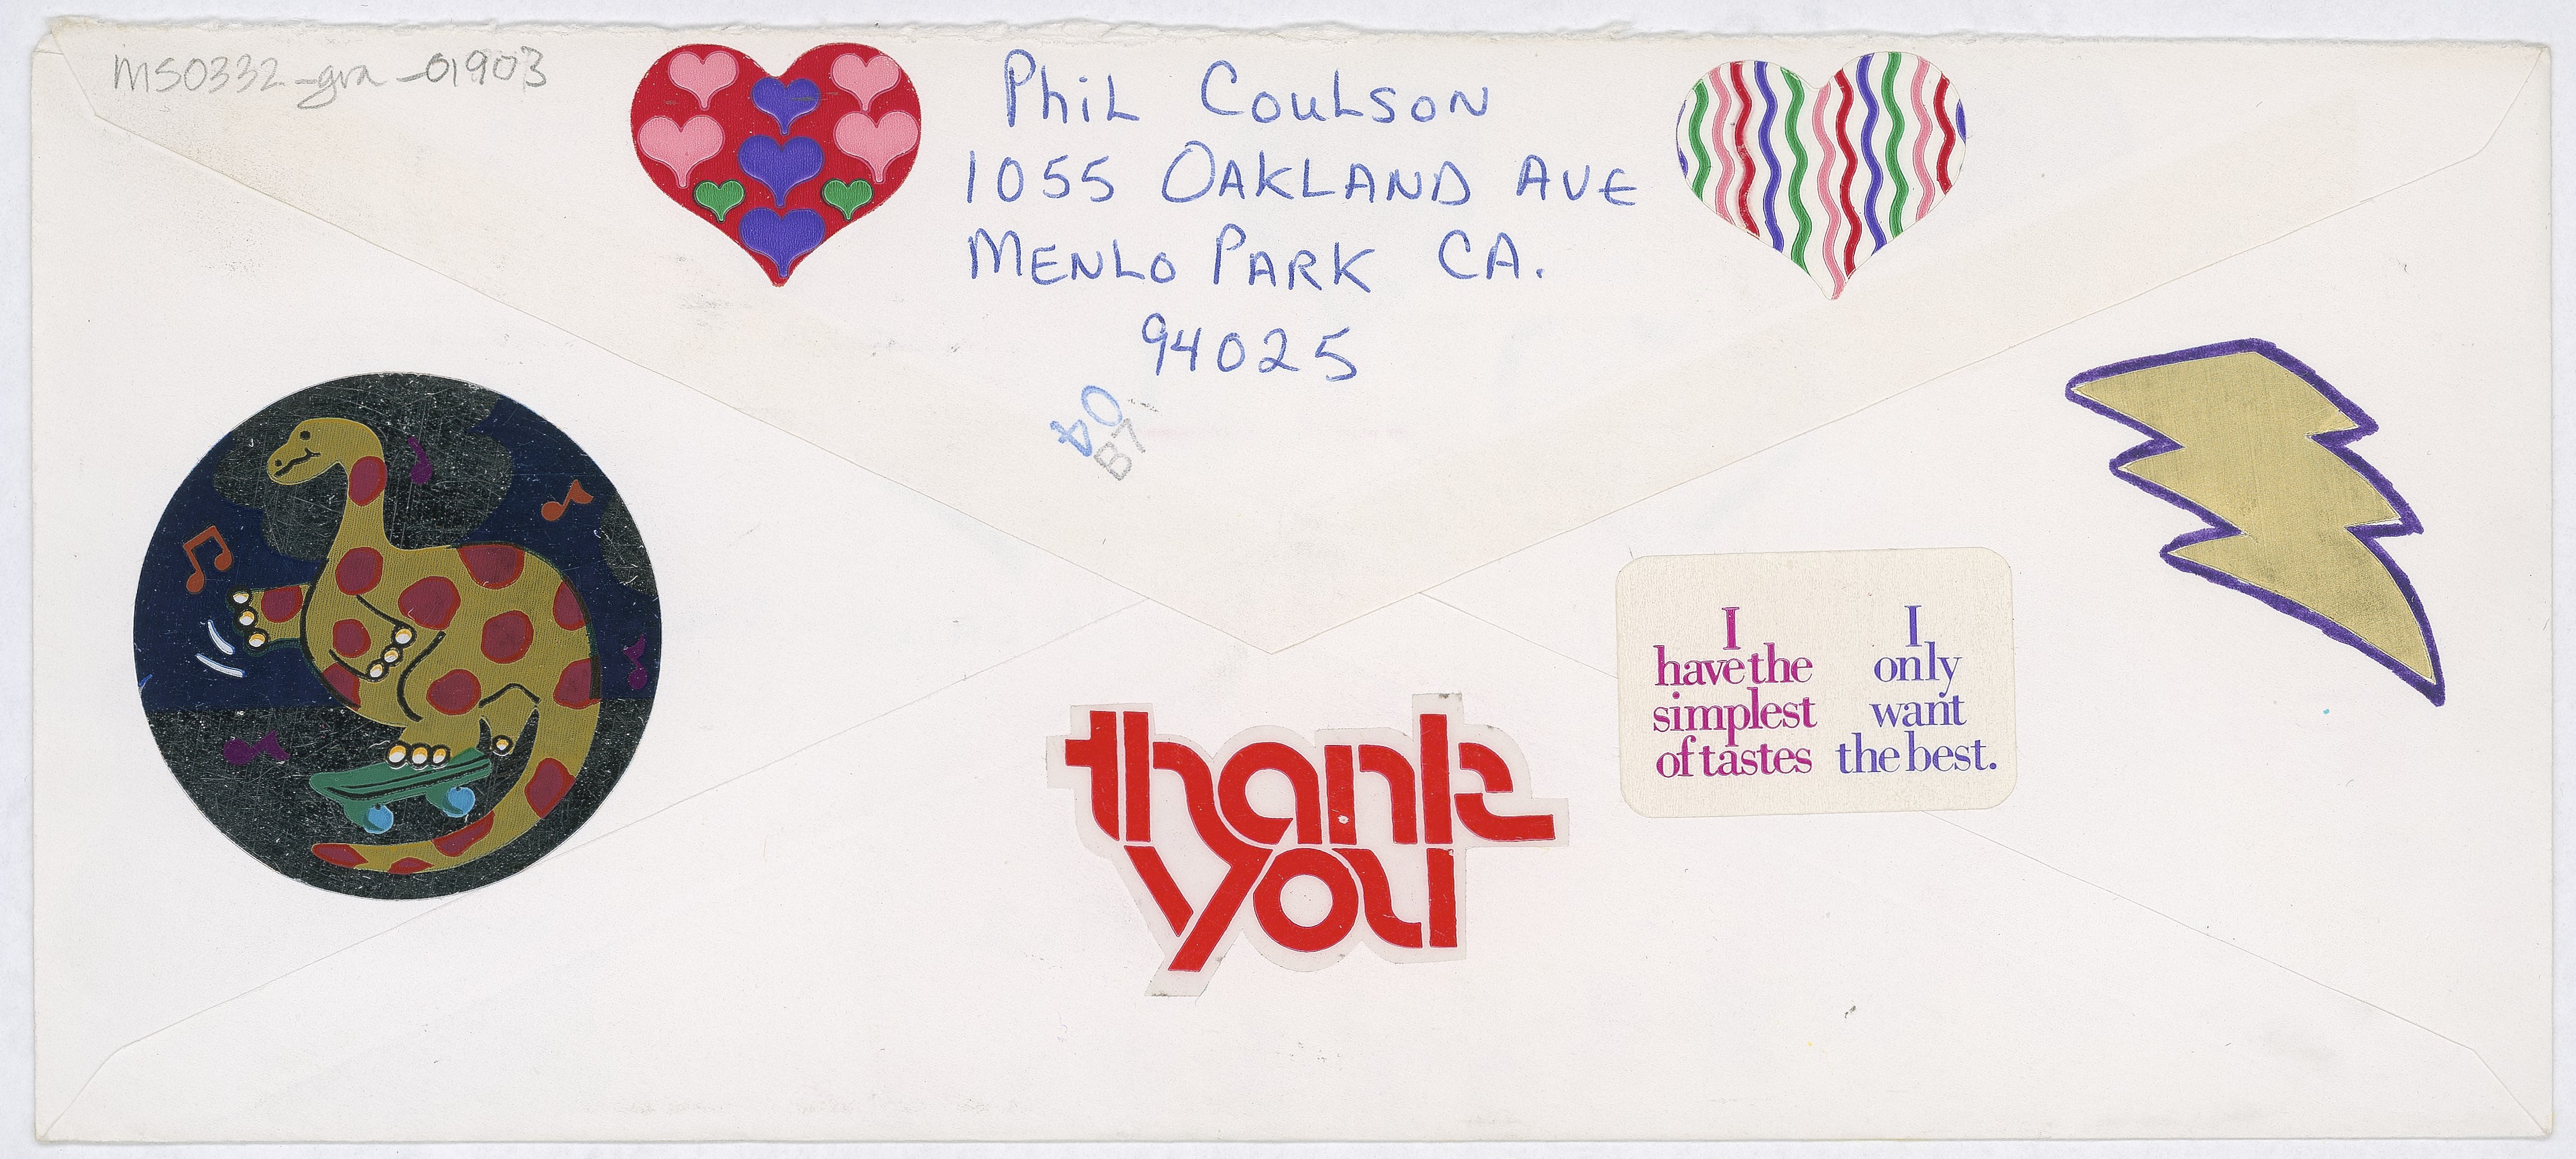 MS0332_gra_01903
PhiL CouLSON
1055 OAKLAND AVE
MENLO PARK CA.
94025
04
B7
I have the simplest of tastes
I only want the best.
thank
you